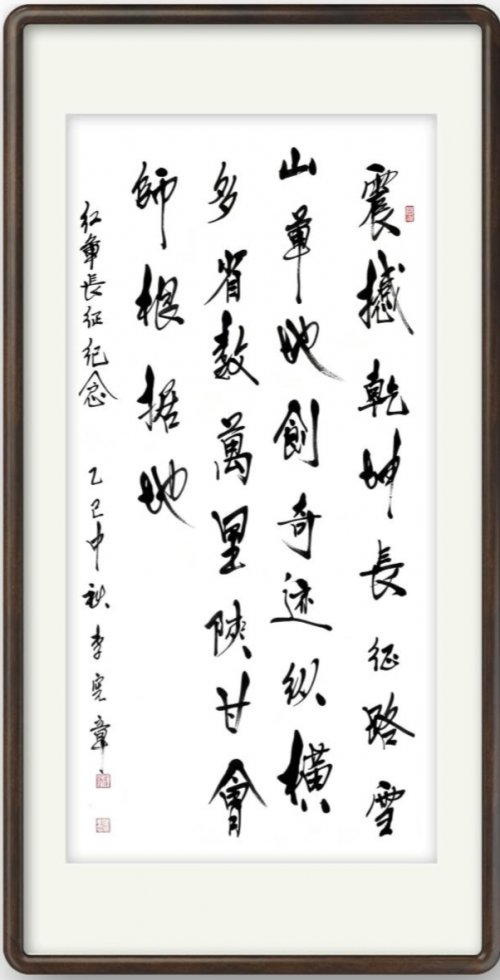 震撼乾坤長征路雪
山草地創奇迹纵横
多省数萬里陝甘會
師根据地
红军長征纪念 乙巳中秋 李宪章